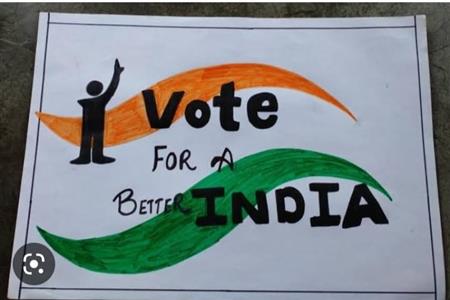 Vote
FOR A
BETTER INDIA